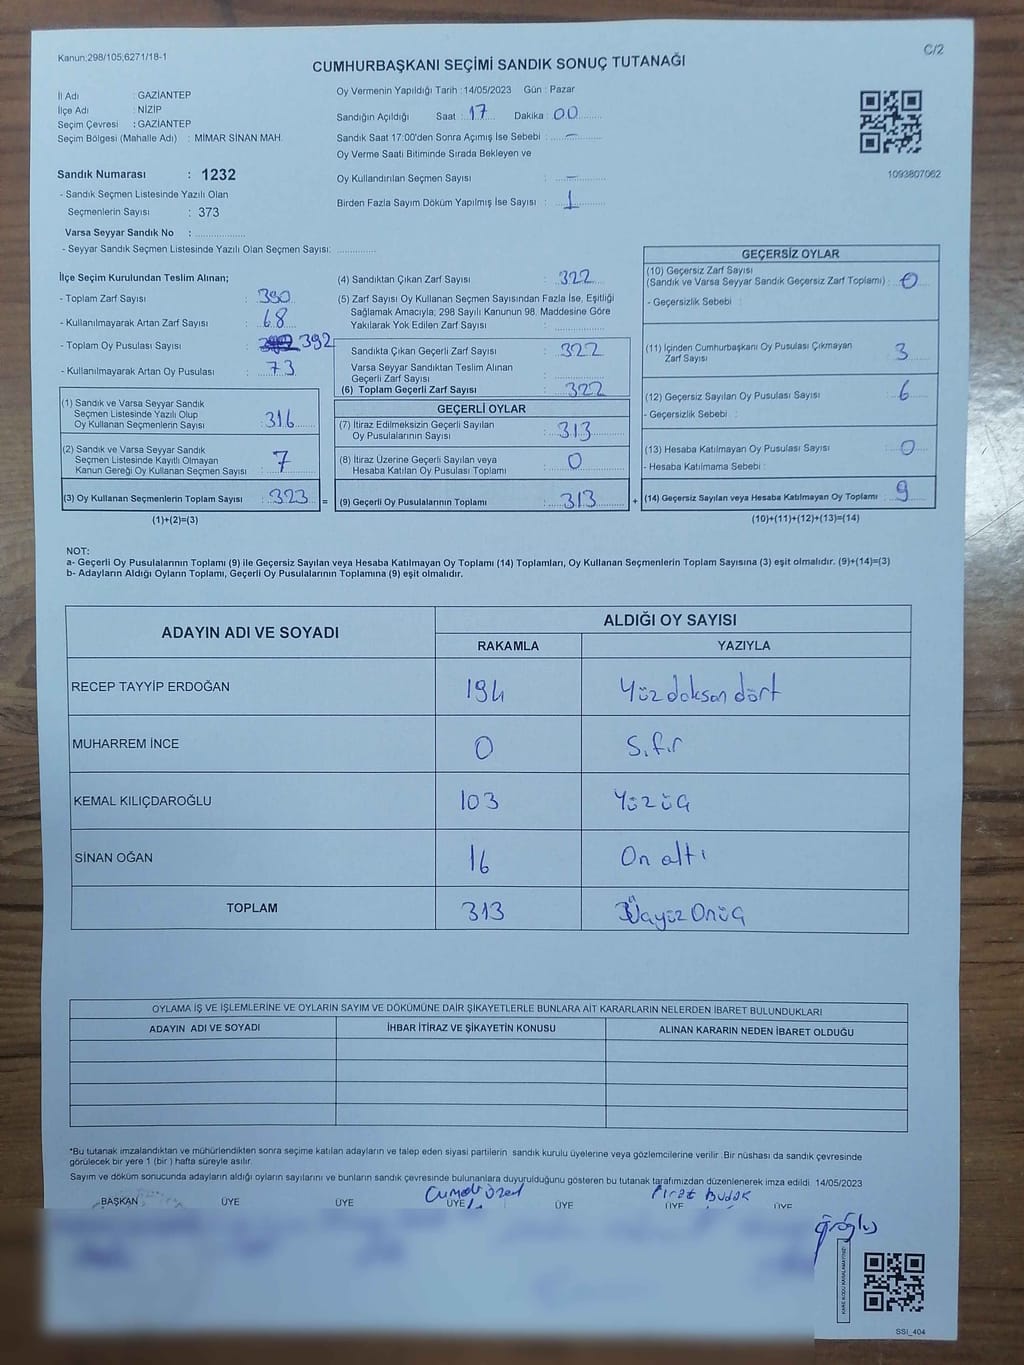 Kanun:298/105;6271/18-1
C/2
CUMHURBAŞKANI SEÇİMİ SANDIK SONUÇ TUTANAĞI
İl Adı : GAZİANTEP
İlçe Adı : NİZİP
Seçim Çevresi : GAZİANTEP
Seçim Bölgesi (Mahalle Adı) : MİMAR SİNAN MAH.
Sandık Numarası : 1232
- Sandık Seçmen Listesinde Yazılı Olan
Seçmenlerin Sayısı : 373
Varsa Seyyar Sandık No :
- Seyyar Sandık Seçmen Listesinde Yazılı Olan Seçmen Sayısı:
Oy Vermenin Yapıldığı Tarih :14/05/2023 Gün : Pazar
Sandığın Açıldığı Saat : 17 Dakika : 00
Sandık Saat 17:00'den Sonra Açımış İse Sebebi : —
Oy Verme Saati Bitiminde Sırada Bekleyen ve
Oy Kullandırılan Seçmen Sayısı : —
Birden Fazla Sayım Döküm Yapılmış İse Sayısı : 1
1093807062
İlçe Seçim Kurulundan Teslim Alınan;
- Toplam Zarf Sayısı : 390
- Kullanılmayarak Artan Zarf Sayısı : 68
- Toplam Oy Pusulası Sayısı : 392
- Kullanılmayarak Artan Oy Pusulası : 73
(1) Sandık ve Varsa Seyyar Sandık
Seçmen Listesinde Yazılı Olup
Oy Kullanan Seçmenlerin Sayısı : 316
(2) Sandık ve Varsa Seyyar Sandık
Seçmen Listesinde Kayıtlı Olmayan
Kanun Gereği Oy Kullanan Seçmen Sayısı : 7
(3) Oy Kullanan Seçmenlerin Toplam Sayısı : 323 =
(1)+(2)=(3)
(4) Sandıktan Çıkan Zarf Sayısı : 322
(5) Zarf Sayısı Oy Kullanan Seçmen Sayısından Fazla İse, Eşitliği
Sağlamak Amacıyla; 298 Sayılı Kanunun 98. Maddesine Göre
Yakılarak Yok Edilen Zarf Sayısı :
Sandıkta Çıkan Geçerli Zarf Sayısı : 322
Varsa Seyyar Sandıktan Teslim Alınan
Geçerli Zarf Sayısı :
(6) Toplam Geçerli Zarf Sayısı : 322
GEÇERLİ OYLAR
(7) İtiraz Edilmeksizin Geçerli Sayılan
Oy Pusulalarının Sayısı : 313
(8) İtiraz Üzerine Geçerli Sayılan veya
Hesaba Katılan Oy Pusulası Toplamı : 0
(9) Geçerli Oy Pusulalarının Toplamı : 313 +
GEÇERSİZ OYLAR
(10) Geçersiz Zarf Sayısı
(Sandık ve Varsa Seyyar Sandık Geçersiz Zarf Toplamı) : 0
- Geçersizlik Sebebi :
(11) İçinden Cumhurbaşkanı Oy Pusulası Çıkmayan
Zarf Sayısı : 3
(12) Geçersiz Sayılan Oy Pusulası Sayısı : 6
- Geçersizlik Sebebi :
(13) Hesaba Katılmayan Oy Pusulası Sayısı : 0
- Hesaba Katılmama Sebebi :
(14) Geçersiz Sayılan veya Hesaba Katılmayan Oy Toplamı : 9
(10)+(11)+(12)+(13)=(14)
NOT:
a- Geçerli Oy Pusulalarının Toplamı (9) ile Geçersiz Sayılan veya Hesaba Katılmayan Oy Toplamı (14) Toplamları, Oy Kullanan Seçmenlerin Toplam Sayısına (3) eşit olmalıdır. (9)+(14)=(3)
b- Adayların Aldığı Oyların Toplamı, Geçerli Oy Pusulalarının Toplamına (9) eşit olmalıdır.
ADAYIN ADI VE SOYADI
ALDIĞI OY SAYISI
RAKAMLA YAZIYLA
RECEP TAYYİP ERDOĞAN 194 Yüz doksan dört
MUHARREM İNCE 0 Sıfır
KEMAL KILIÇDAROĞLU 103 Yüz üç
SİNAN OĞAN 16 On altı
TOPLAM 313 Üçyüz Onüç
OYLAMA İŞ VE İŞLEMLERİNE VE OYLARIN SAYIM VE DÖKÜMÜNE DAİR ŞİKAYETLERLE BUNLARA AİT KARARLARIN NELERDEN İBARET BULUNDUKLARI
ADAYIN ADI VE SOYADI İHBAR İTİRAZ VE ŞİKAYETİN KONUSU ALINAN KARARIN NEDEN İBARET OLDUĞU
*Bu tutanak imzalandıktan ve mühürlendikten sonra seçime katılan adayların ve talep eden siyasi partilerin sandık kurulu üyelerine veya gözlemcilerine verilir .Bir nüshası da sandık çevresinde
görülecek bir yere 1 (bir ) hafta süreyle asılır.
Sayım ve döküm sonucunda adayların aldığı oyların sayılarını ve bunların sandık çevresinde bulunanlara duyurulduğunu gösteren bu tutanak tarafımızdan düzenlenerek imza edildi. 14/05/2023
BAŞKAN ÜYE ÜYE ÜYE ÜYE ÜYE ÜYE
Fırat budak
KARE KODU KARALAMAYINIZ!
SSI_404